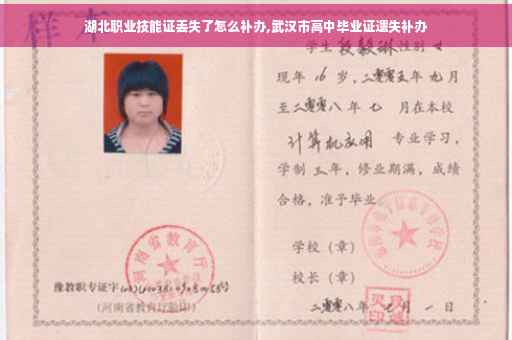 湖北职业技能证丢失了怎么补办,武汉市高中毕业证遗失补办
样本
学生 段毅琳 性别 女
现年 16 岁，二零零五年 九月
至二零零八年 七 月在本校
计算机应用 专业学习，
学制 三年，修业期满，成绩
合格，准予毕业
学校（章）
校长（章）
河南省教育厅
豫教职专证字
(河南省教育厅验印)
二零零八年 月 一 日